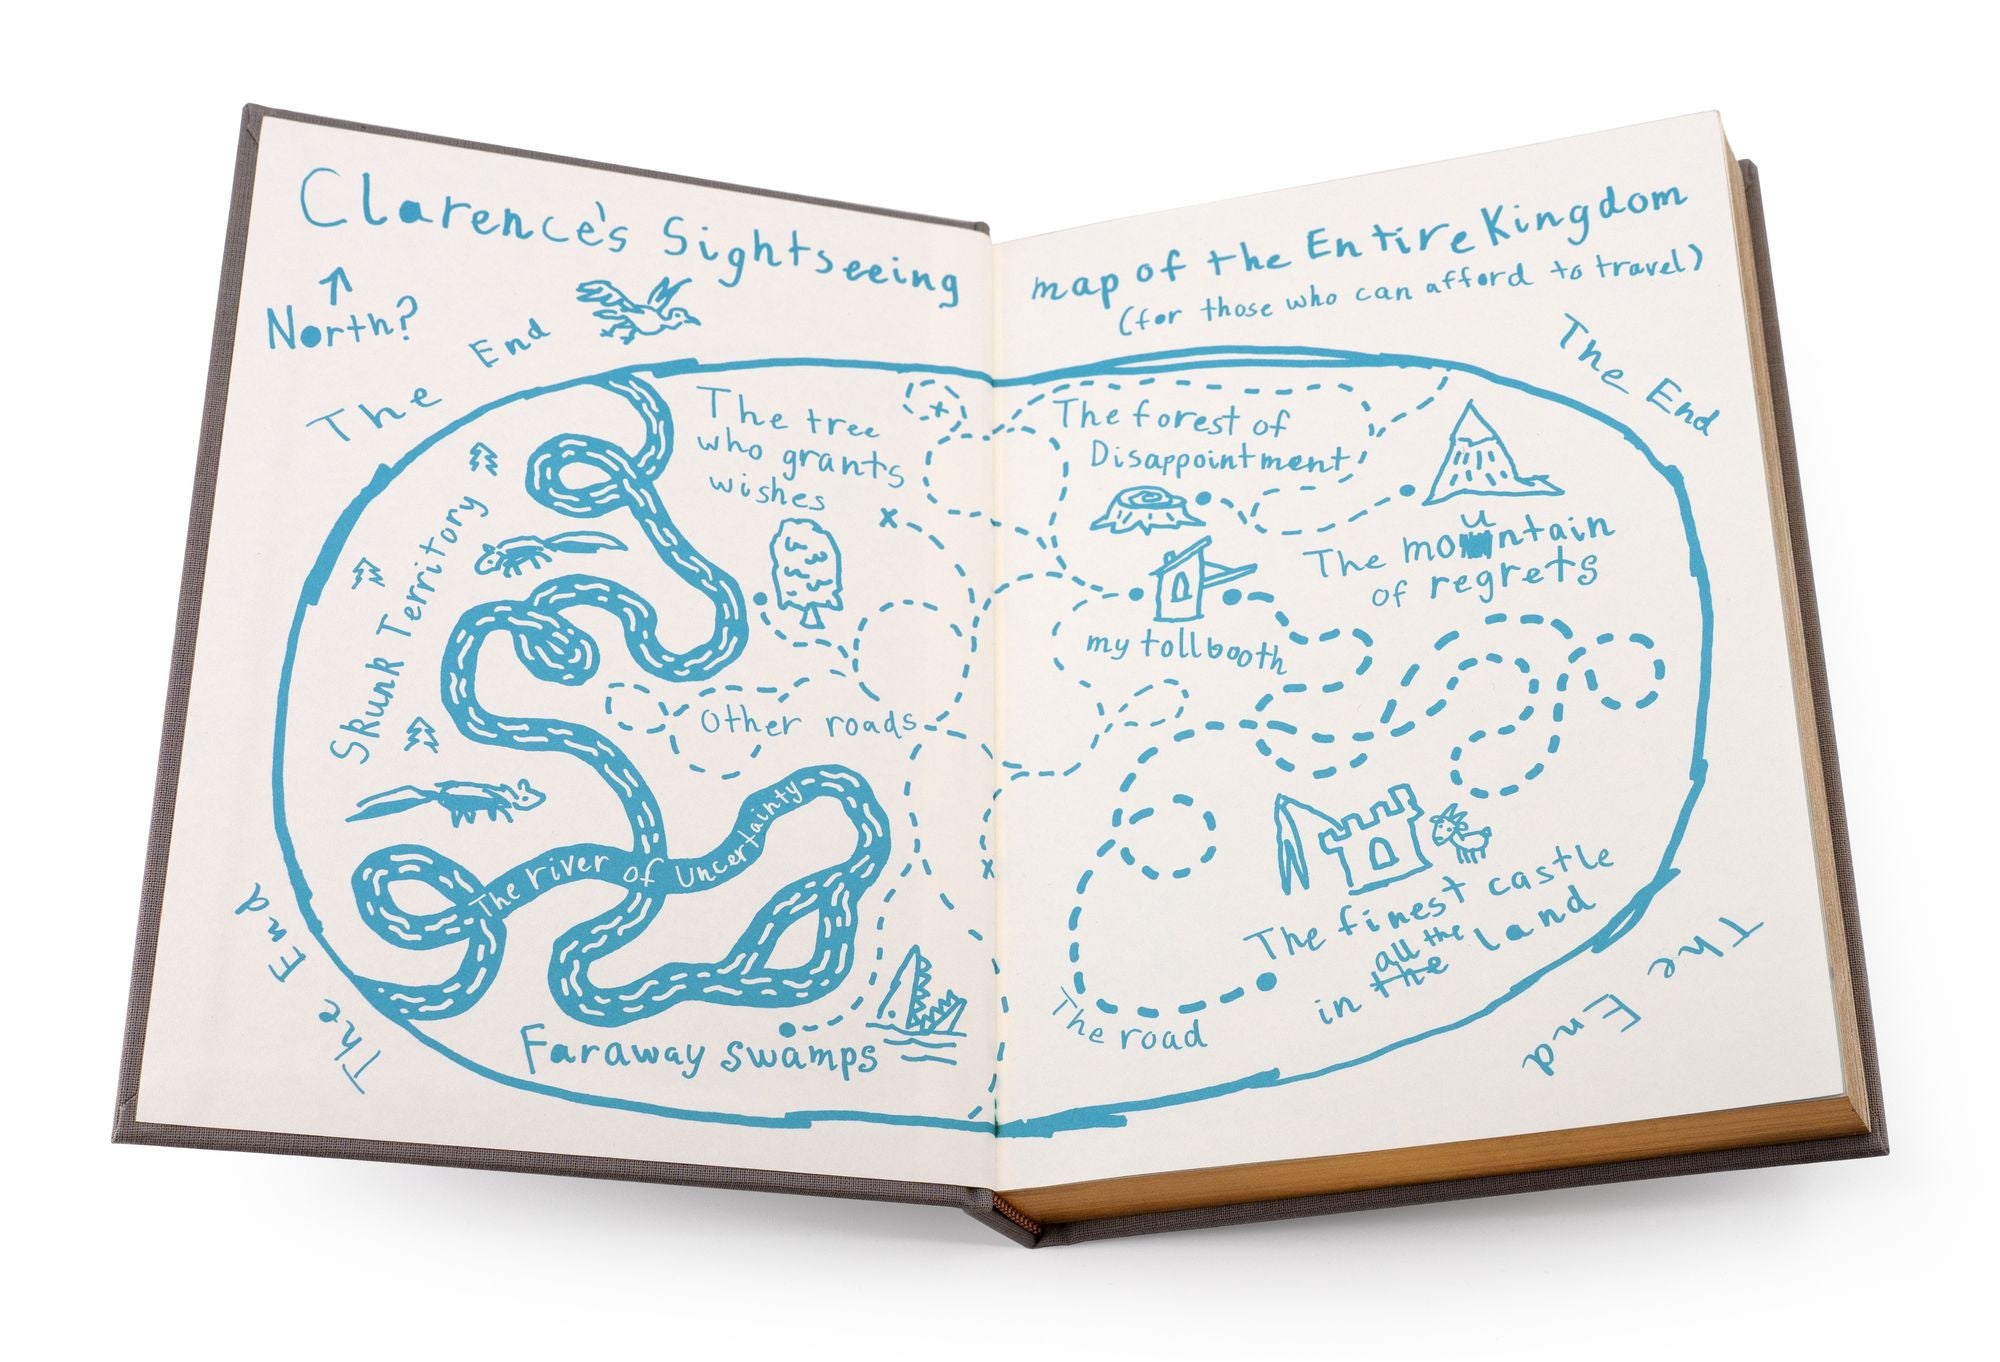 Clarence's Sightseeing
map of the Entire Kingdom
(for those who can afford to travel)
North?
The End
The End
The tree
who grants
wishes
The forest of
Disappointment
The mountain
of regrets
Skunk Territory
my tollbooth
Other roads
The river of Uncertainty
The finest castle
in all the land
The road
Faraway swamps
The End
The End